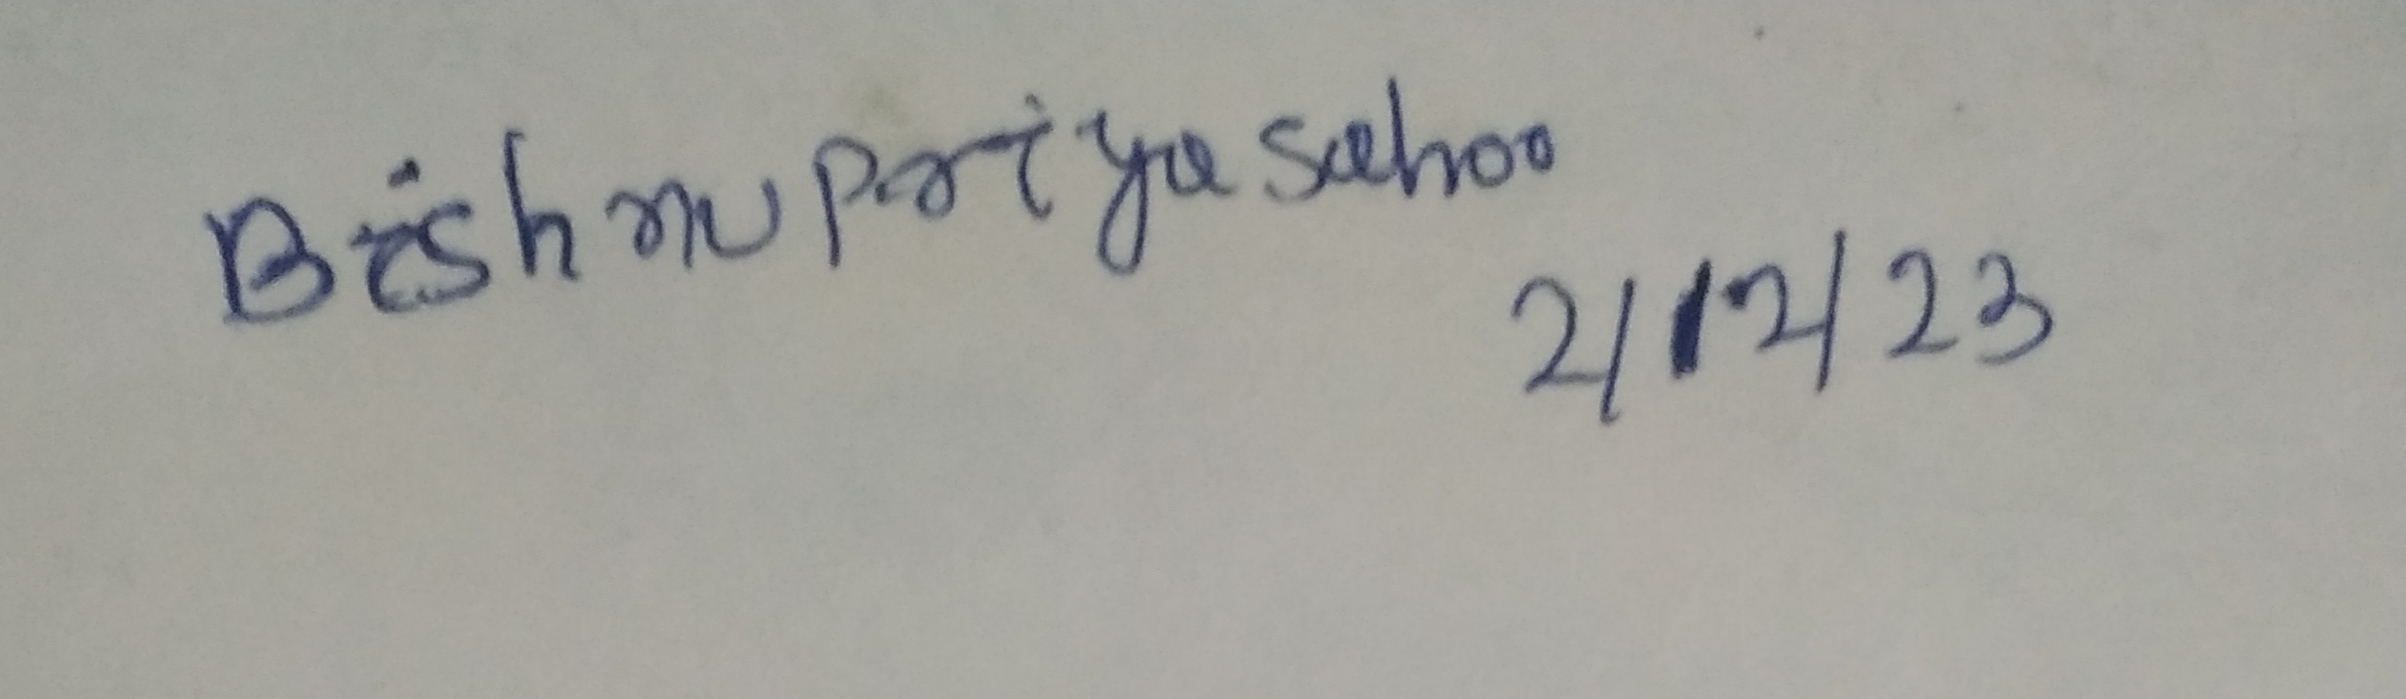 Bishnupriya sahoo
2/12/23